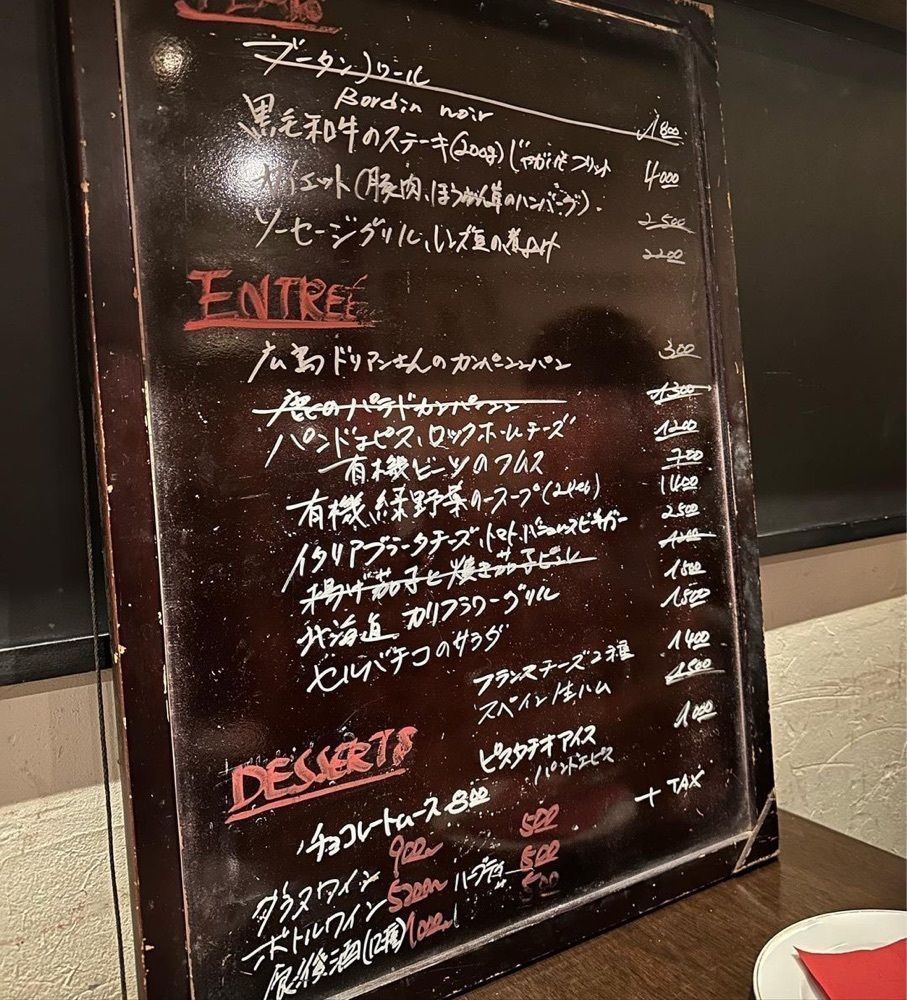 ブータンノワール
Bordin noir 1800
黒毛和牛のステーキ(200g)じゃがいもフリット 4000
カイエット(豚肉、ほうれん草のハンバーグ) 2500
ソーセージグリル、レンズ豆の煮込み 2200
ENTREE
広島ドリアンさんのカンパーニュパン 300
鹿のパテドカンパーニュ 1300
パンドエピス、ロックホールチーズ 1200
有機ビーツのフムス 700
有機緑野菜のスープ 1400
イタリアブラータチーズ、トマト、 2500
揚げ茄子と焼き茄子ピュレ 1200
北海道カリフラワーグリル 1500
セルバチコのサラダ 1500
フランスチーズ2種 1400
スペイン生ハム 1500
DESSERTS
ピスタチオアイス 1000
パンドエピス
チョコレートムース 800
+ TAX
グラスワイン 900~ 500
ボトルワイン 5200~ ハーブティー 500
食後酒(12種) 1000~ 500